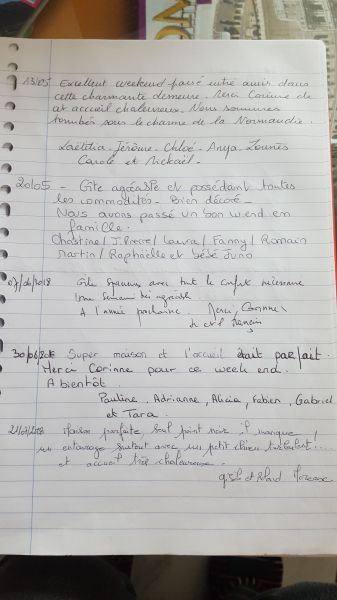 13/05 Excellent weekend passé entre amis dans
cette charmante demeure. Merci Corinne de
cet accueil chaleureux. Nous sommes
tombés sous le charme de la Normandie.
Laëtitia - Jérôme - Chloé - Anya - Lounes
Carole et Mickaël.
20/05 - Gîte agréable et possédant toutes
les commodités - Bien décoré -
Nous avons passé un bon w.end en
famille.
Christine / J.Pierre / Laura / Fanny / Romain
Martin / Raphaëlle et bébé Juno
07/06/2018 Gîte spacieux avec tout le confort nécessaire
Une semaine très agréable
A l'année prochaine. Merci, Corinne
30/06/2018 Super maison et l'accueil était parfait.
Merci Corinne pour ce week end.
A bientôt.
Pauline, Adrianne, Alicia, Fabien, Gabriel
et Tara.
21/07/2018 Maison parfaite seul point noir il manque
un entourage surtout avec un petit chien turbulent!...
et accueil très chaleureuse.
et